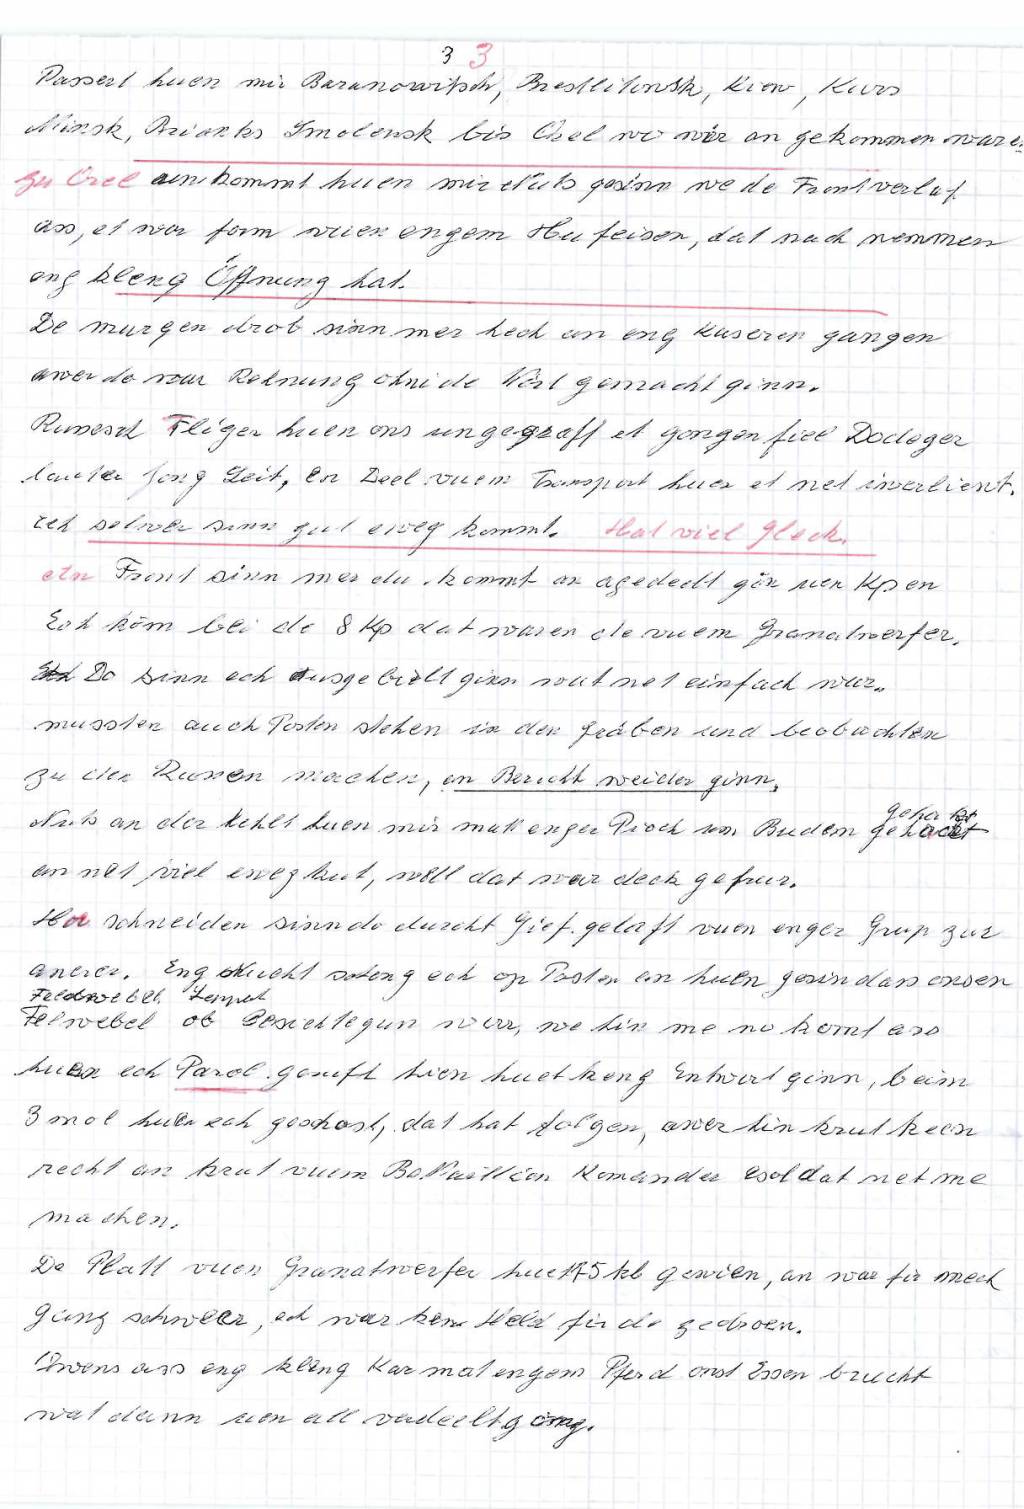 3 3
Passert huen mir Baranowitsch, Brestlitowsk, Kiew, Kurs
Minsk, Brianks Smolensk bis Orel wo wir an gekommen waren
zu Orel ankommt huen mir Nuts gesinn we de Frontverlaf
ass, et war form vuen engem Hufeisen, dat nach nemmen
eng kleng Öffnung hat.
De murgen drob sinn mer hech an eng Kuseren gangen
awer do war Rehnung ohni de Virt gemacht ginn.
Russesch Fliger huen ons ungegraff et gongen fiel Dodeger
lauter jong Leit, En Deel vuem Transport huen et net iwerlieвt.
ech selwer sinn gut eweg kommt. Hat viel Gleck.
Front sinn mer du kommt an agedeelt gön uen Kp en
Ech köm bei de 8 Kp dat waren de vuem Granatwerfer.
Do sinn ech Ausgebielt ginn wat net einfach war.
mussten auch Posten stehen in den gräben und beobachten
zu den Russen machen, en Bericht weider ginn,
Nuts an der kehlt huen mir matt enger Pioch um Budem gehackt
an net viel ewegkut, well dat war deck gefrur.
schneiden sinn do duercht Gief. gelaft vuen enger Grup zur
anerer. Eng Nucht stong ech op Posten an huen gesin dass onsen
Feldwebel
Felwebel ob Besichtegun war, we hin me no komt ass
huen ech Parol geruft hien huet keng Entwert ginn, beim
3 mol huen ech geschost, dat hat folgen, awer hin krut keen
recht an krut vuem Battaillion Komander esoldat net me
machen.
De Platt vuen Granatwerfer huet 45 kl gewien, an war fir mech
ganz schweer, ech war ken Held fir de gedroen.
Owens ass eng kleng Kar mat engem Pferd onst Essen brucht
wat dann uen all verdeelt gong.